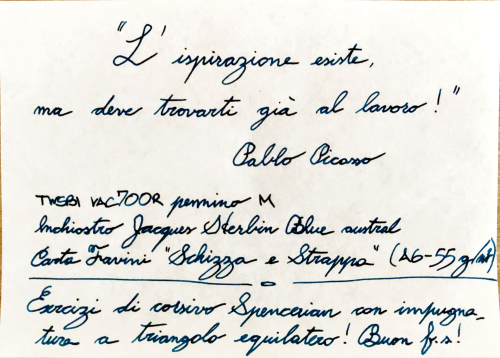 "L'ispirazione esiste,
ma deve trovarti già al lavoro!"
Pablo Picasso
TWSBI VAC700R pennino M
Inchiostro Jacques Herbin Blue austral
Carta Favini "Schizza e Strappa" (A6-55 g/mt²)
Esercizi di corsivo Spencerian con impugna-
tura a triangolo equilatero! Buon f.s!